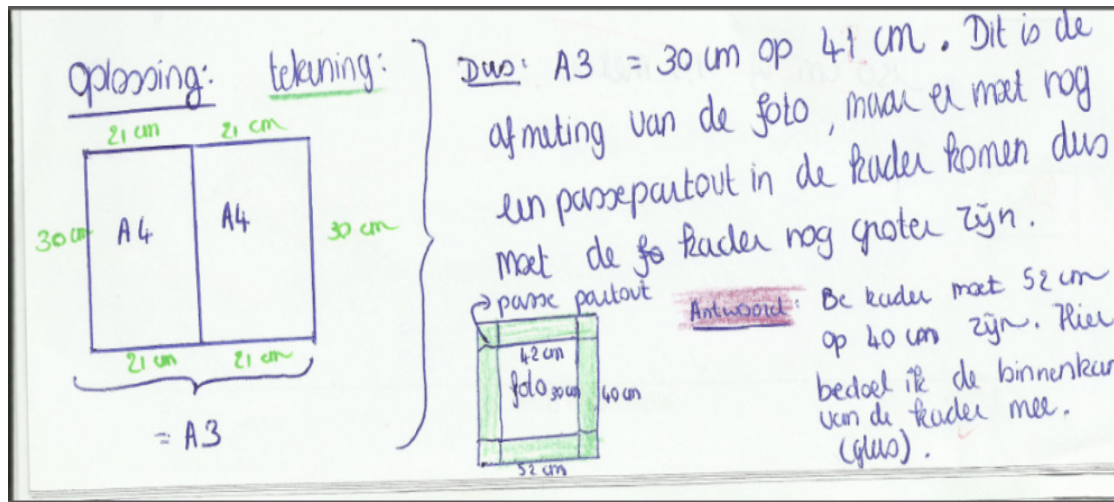 Oplossing: tekening:
21 cm 21 cm
30 cm A4 A4 30 cm
21 cm 21 cm
= A3
Dus: A3 = 30 cm op 41 cm. Dit is de
afmeting van de foto, maar er moet nog
een passepartout in de kader komen dus
moet de fo kader nog groter zijn.
passe partout
42 cm
foto 30 cm 40 cm
52 cm
Antwoord: De kader moet 52 cm
op 40 cm zijn. Hier
bedoel ik de binnenkan
van de kader mee.
(glas).